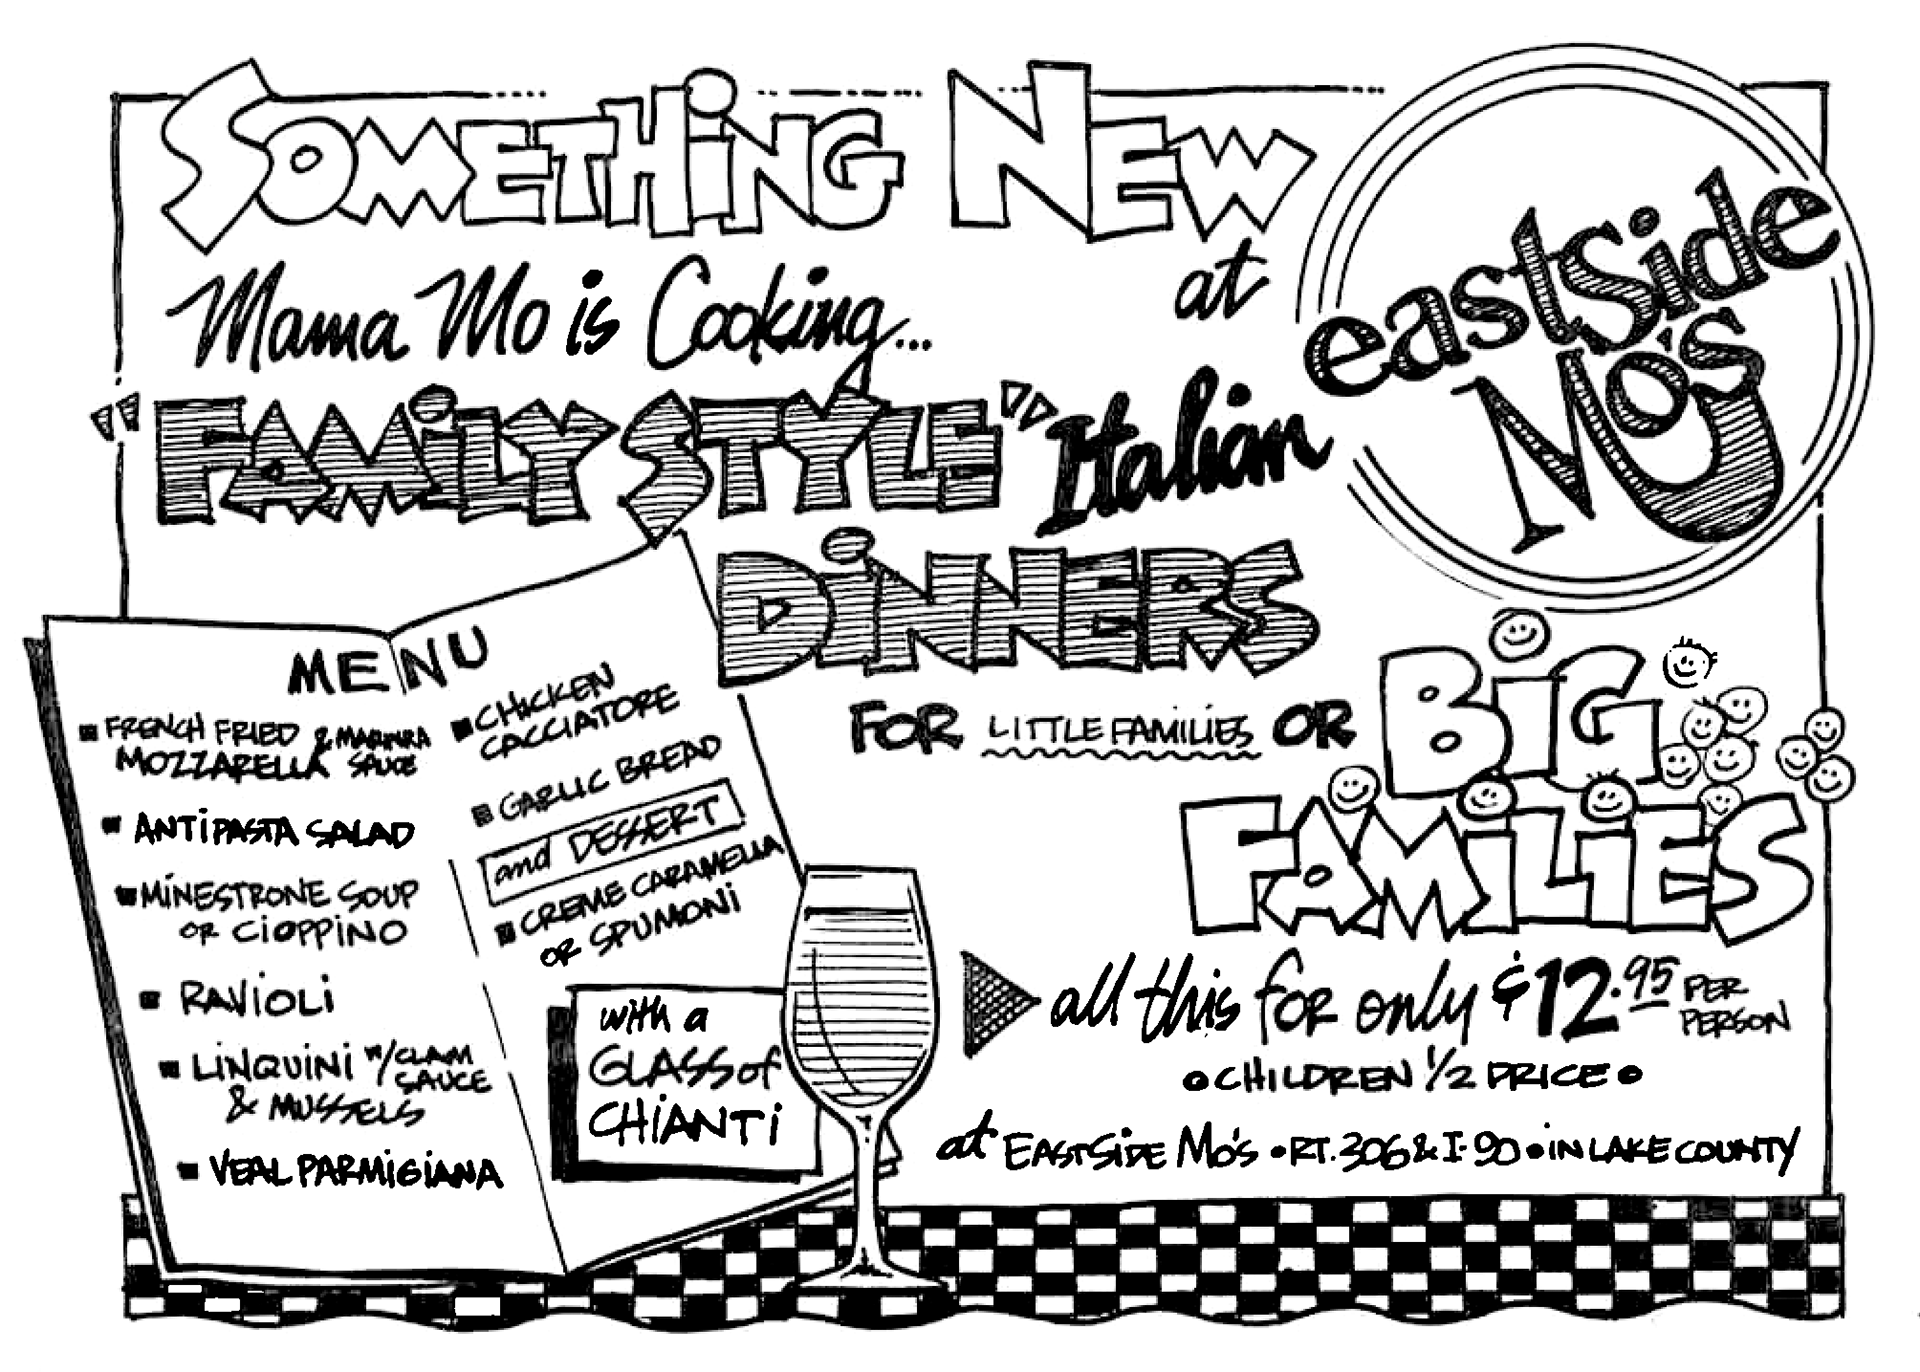 SOMETHiNG NEW
at
eastside
Mo's
Mama Mo is Cooking...
"FAMiLY STYLE" Italian
DiNNERS
FOR LITTLE FAMILIES OR BIG
FAMiLiES
MENU
▪ FRENCH FRIED & MARINARA
MOZZARELLA SAUCE
▪ ANTiPASTA SALAD
▪ MiNESTRONE SOUP
OR CiOPPiNO
▪ RAViOLi
▪ LiNQUiNi W/CLAM
SAUCE
& MUSSELS
▪ VEAL PARMiGiANA
▪ CHICKEN
CACCIATORE
▪ GARLIC BREAD
and DESSERT
▪ CREME CARAMELLA
OR SPUMONi
with a
GLASS of
CHiANTi
all this FOR only $12.95 PER
PERSON
• CHILDREN 1/2 PRICE •
at EASTSiDE Mo's • RT. 306 & I-90 • iN LAKE COUNTY